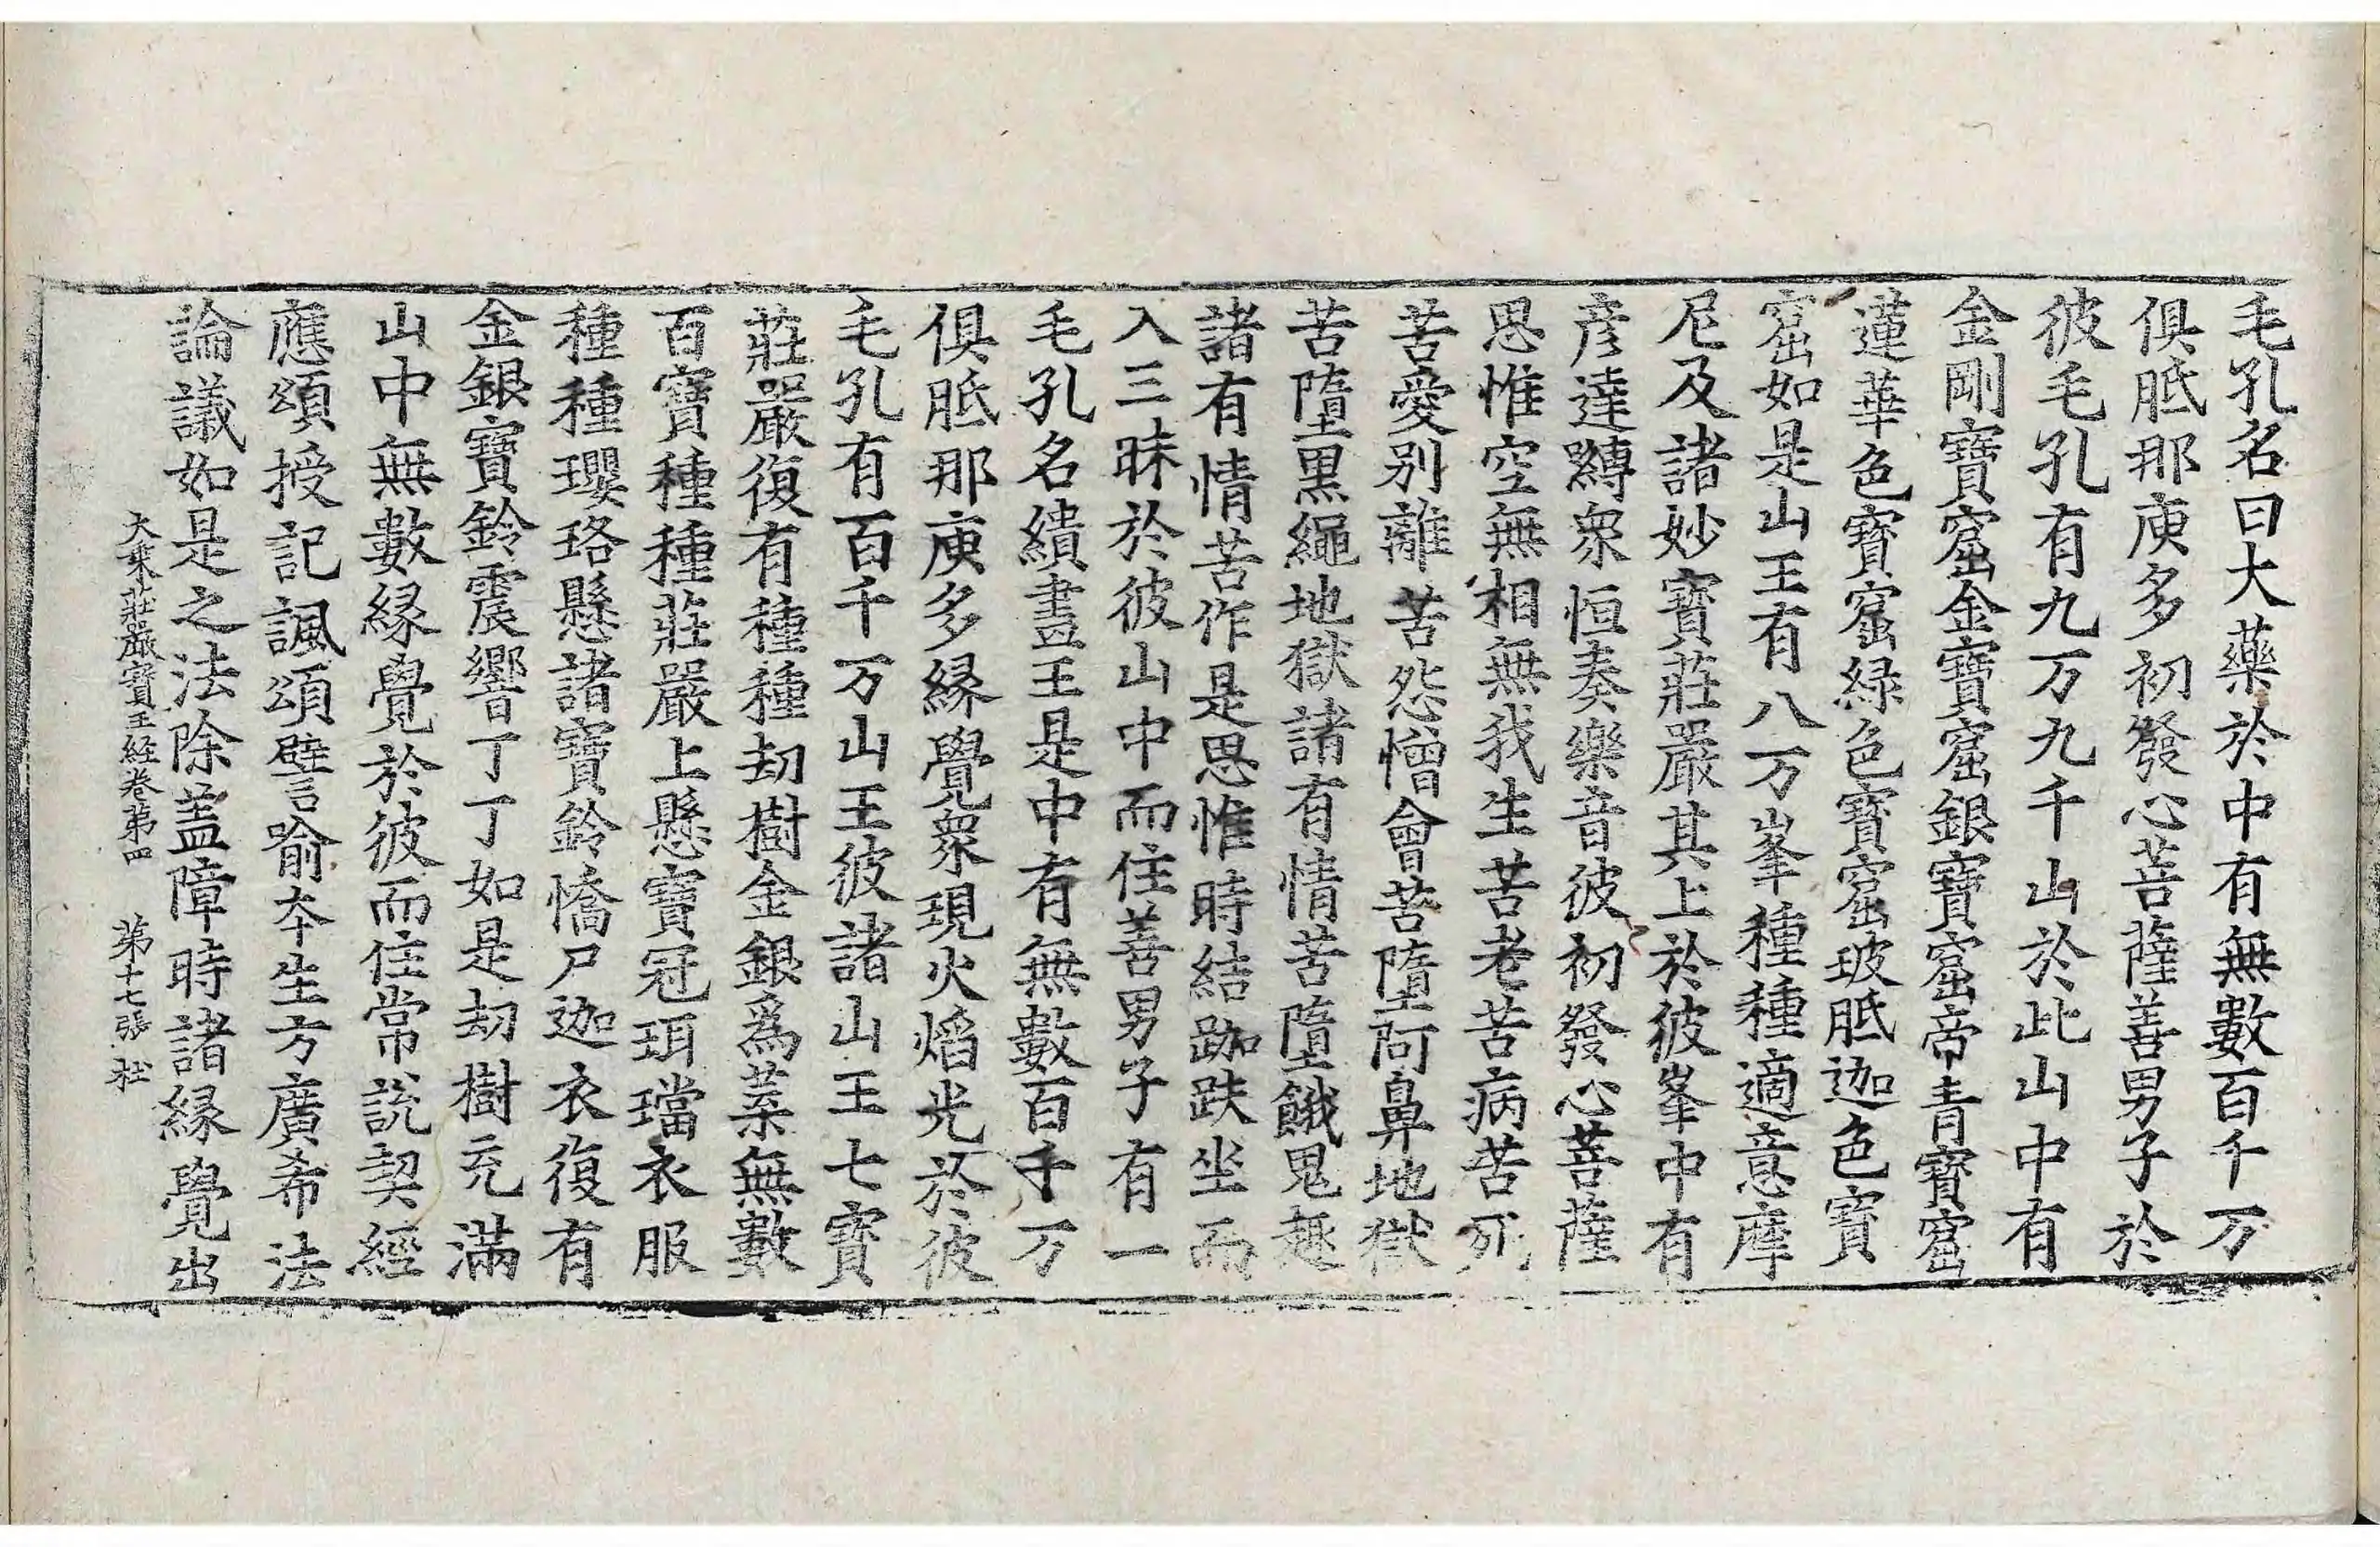 毛孔名曰大藥於中有無數百千万
俱胝那庾多初發心菩薩善男子於
彼毛孔有九万九千山於此山中有
金剛寶窟金寶窟銀寶窟帝青寶窟
蓮華色寶窟緑色寶窟玻胝迦色寶
窟如是山王有八万峯種種適意摩
尼及諸妙寶莊嚴其上於彼峯中有
彦達嚩衆恒奏樂音彼初發心菩薩
思惟空無相無我生苦老苦病苦死
苦愛別離苦怨憎會苦墮阿鼻地獄
苦墮黒繩地獄諸有情苦墮餓鬼趣
諸有情苦作是思惟時結跏趺坐而
入三昧於彼山中而住善男子有一
毛孔名繢畫王是中有無數百千万
俱胝那庾多緣覺衆現火焰光於彼
毛孔有百千万山王彼諸山王七寶
莊嚴復有種種劫樹金銀爲葉無數
百寶種種莊嚴上懸寶冠珥璫衣服
種種瓔珞懸諸寶鈴憍尸迦衣復有
金銀寶鈴震響丁丁如是劫樹充滿
山中無數緣覺於彼而住常說契經
應頌授記諷頌譬喻本生方廣希法
論議如是之法除盖障時諸緣覺出
大乘莊嚴寶王経卷第四 第十七張